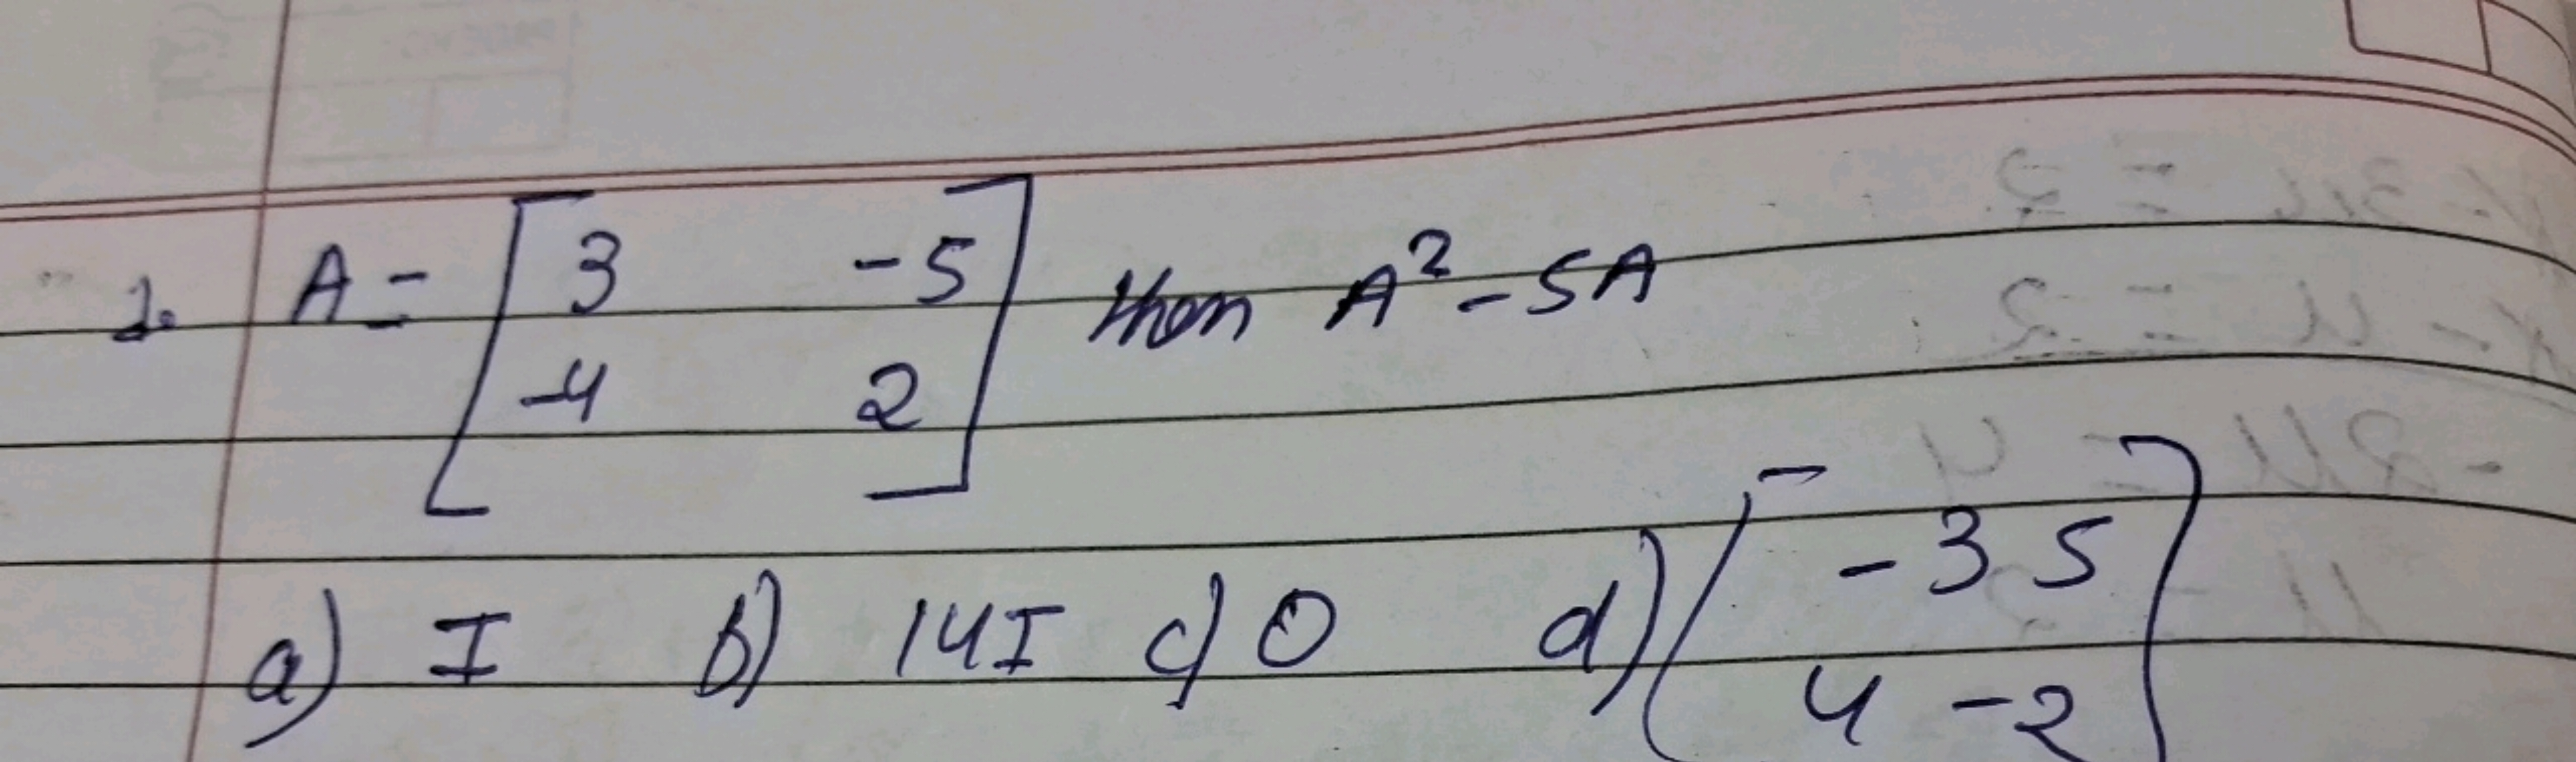 1. A = [ 3 -5 ] then A² - 5A
-4 2
a) I b) 14I c) O d) [ -3 5 ]
4 -2